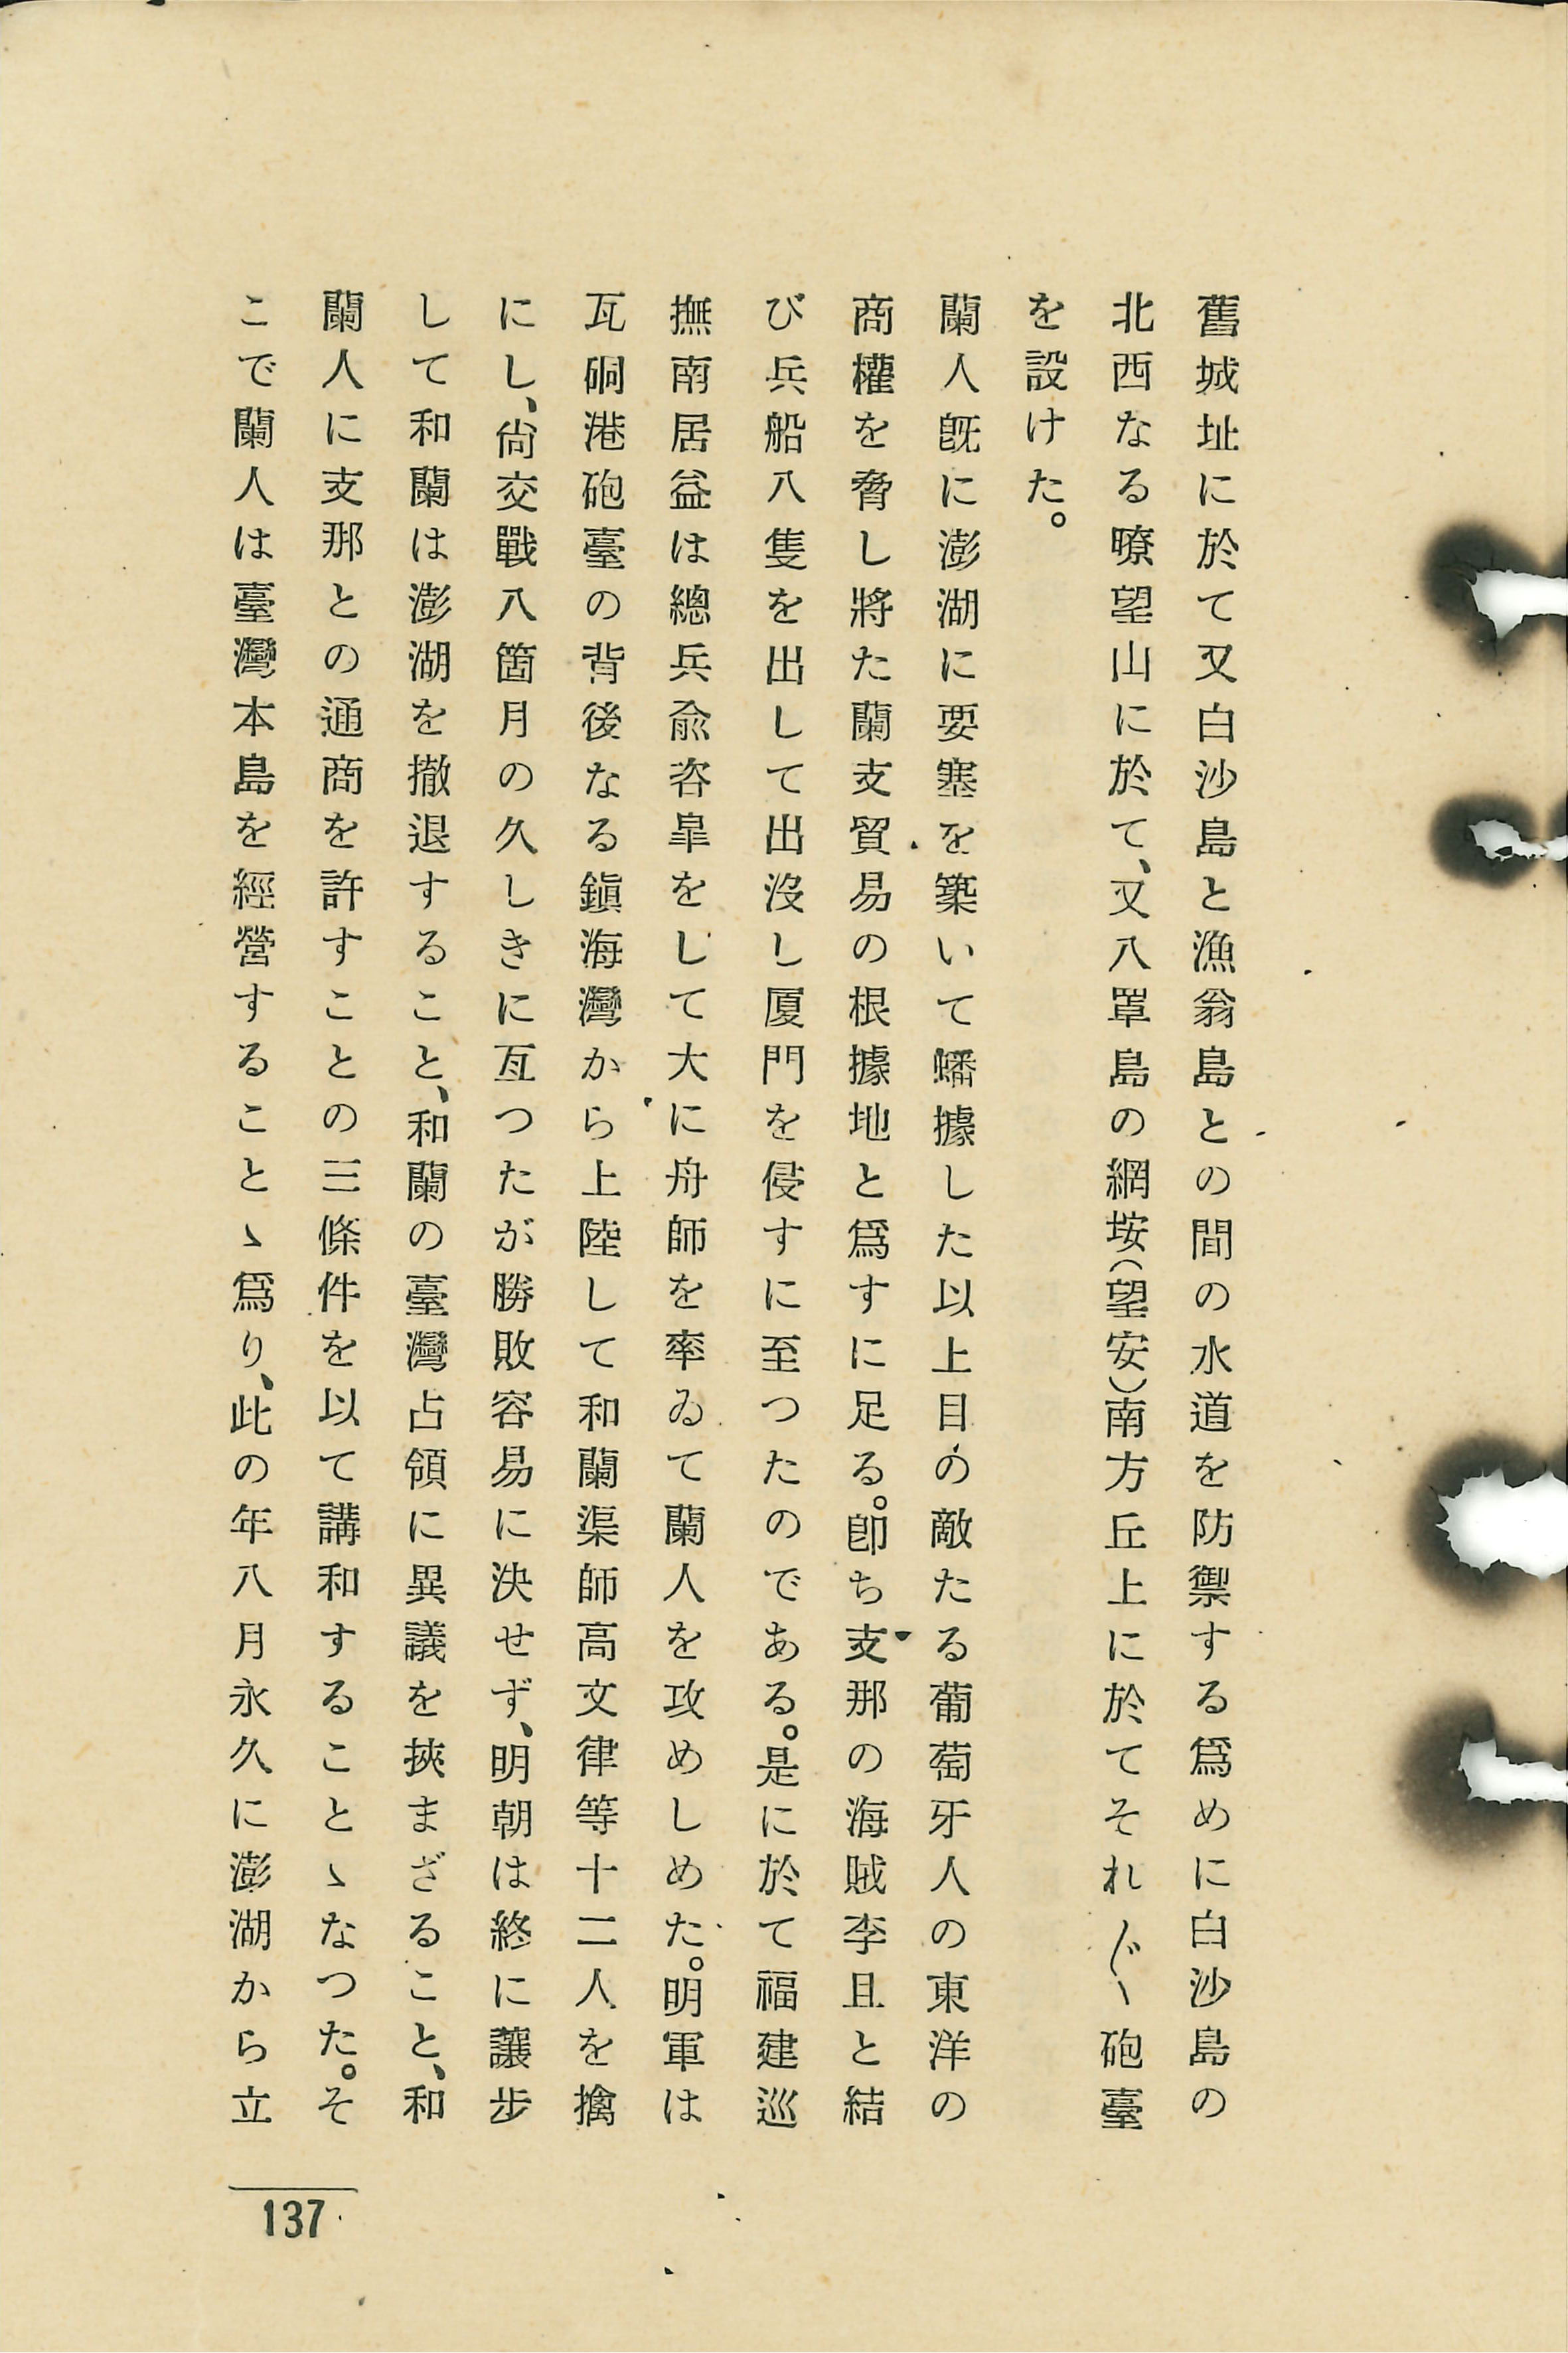 舊城址に於て又白沙島と漁翁島との間の水道を防禦する爲めに白沙島の
北西なる暸望山に於て、又八罩島の網垵(望安)南方丘上に於てそれ〴〵砲臺
を設けた。
蘭人旣に澎湖に要塞を築いて蟠據した以上目の敵たる葡萄牙人の東洋の
商權を脅し將た蘭支貿易の根據地と爲すに足る。卽ち支那の海賊李且と結
び兵船八隻を出して出沒し厦門を侵すに至つたのである。是に於て福建巡
撫南居益は總兵兪咨皐をして大に舟師を率ゐて蘭人を攻めしめた。明軍は
瓦硐港砲臺の背後なる鎭海灣から上陸して和蘭渠師高文律等十二人を擒
にし、尙交戰八箇月の久しきに亙つたが勝敗容易に決せず、明朝は終に讓步
して和蘭は澎湖を撤退すること、和蘭の臺灣占領に異議を挾まざること、和
蘭人に支那との通商を許すことの三條件を以て講和することゝなつた。そ
こで蘭人は臺灣本島を經營することゝ爲り、此の年八月永久に澎湖から立
137